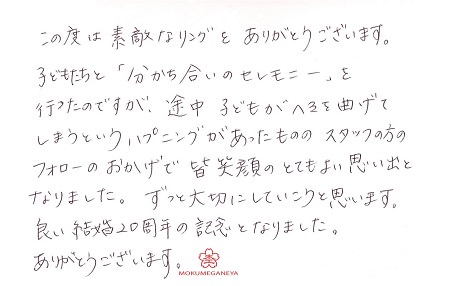 この度は素敵なリングを ありがとうございます。
子どもたちと「分かち合いのセレモニー」を
行ったのですが、途中 子どもがヘソを曲げて
しまうというハプニングがあったものの スタッフの方の
フォローのおかげで 皆笑顔のとてもよい思い出と
なりました。 ずっと大切にしていこうと思います。
良い結婚20周年の記念となりました。
ありがとうございます。
MOKUMEGANEYA